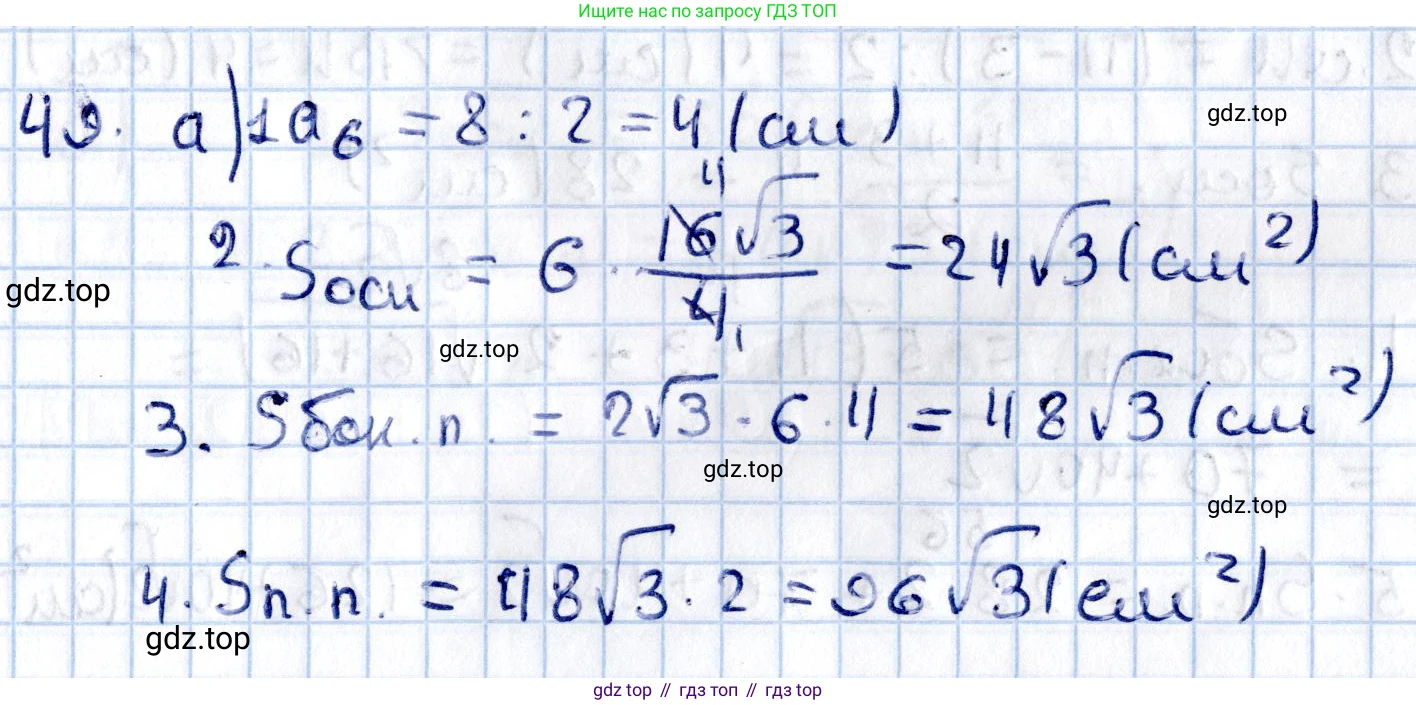 Ищите нас по запросу ГДЗ ТОП
49. а) 1 a₆ = 8 : 2 = 4 (см)
gdz.top
2. Sосн = 6 · 16√3/4 = 24√3 (см²)
4
1
gdz.top
gdz.top
3. Sбок. п. = 2√3 · 6 · 4 = 48√3 (см²)
gdz.top
gdz.top
4. Sп. п. = 48√3 · 2 = 96√3 (см²)
gdz.top
gdz top // гдз топ // gdz top